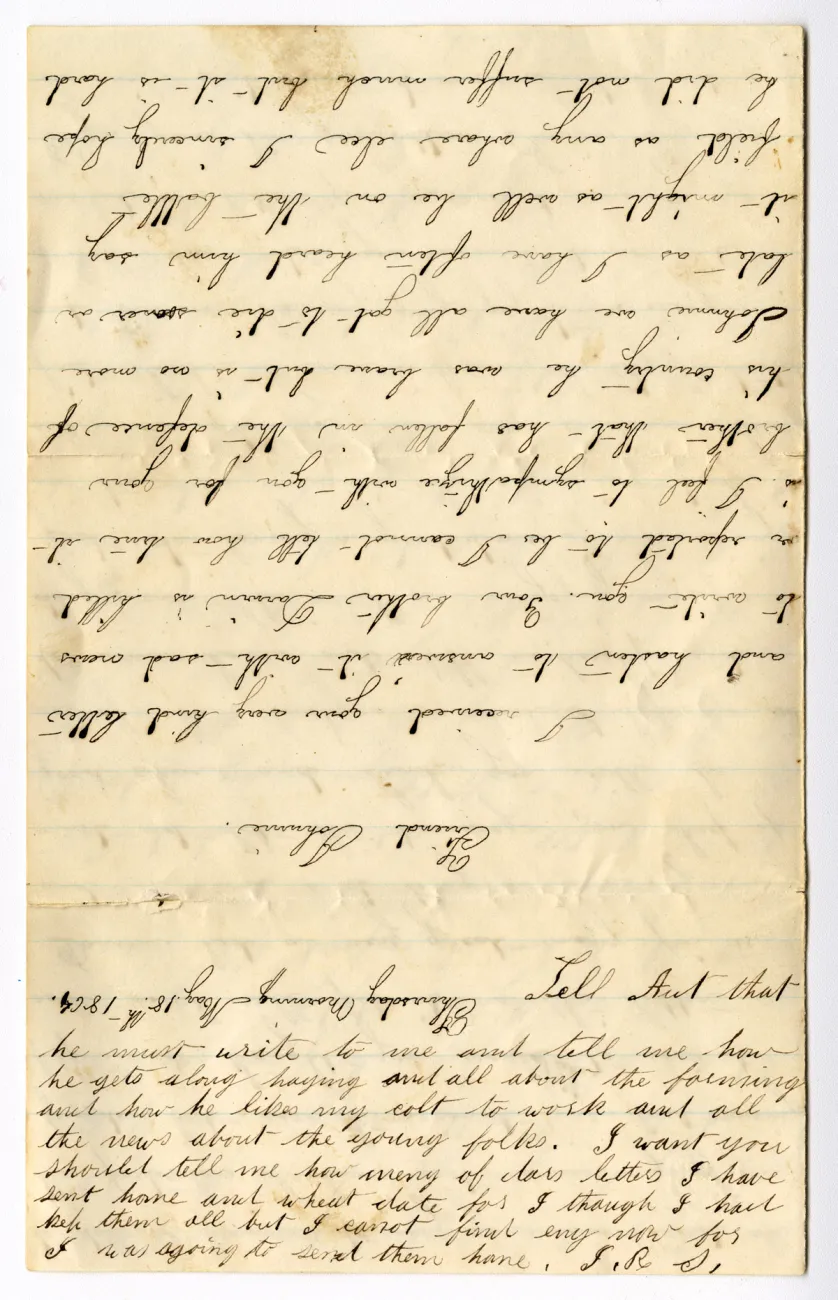 Thursday Morning May. 18.th 1864.
Friend Johnnie.
I received your very kind letter
and hasten to answer it with sad news
to write you. Your brother Darwin is killed
or reported to be I cannot tell how true it
is. I feel to sympathize with you for your
brother that has fallen in the defence of
his country he was brave but is no more
Johnnie we have all got to die sooner or
late as I have often heard him say
it might as well be on the battle
field as any where else I sincerely hope
he did not suffer much but it is hard
Tell Aut that
he must write to me and tell me how
he gets along haying and all about the farming
and how he likes my colt to work and all
the news about the young folks. I want you
should tell me how meny of dars letters I have
sent home and wheat date for I though I had
kep them all but I canot find eny now for
I was agoing to send them hane. J. R. S.